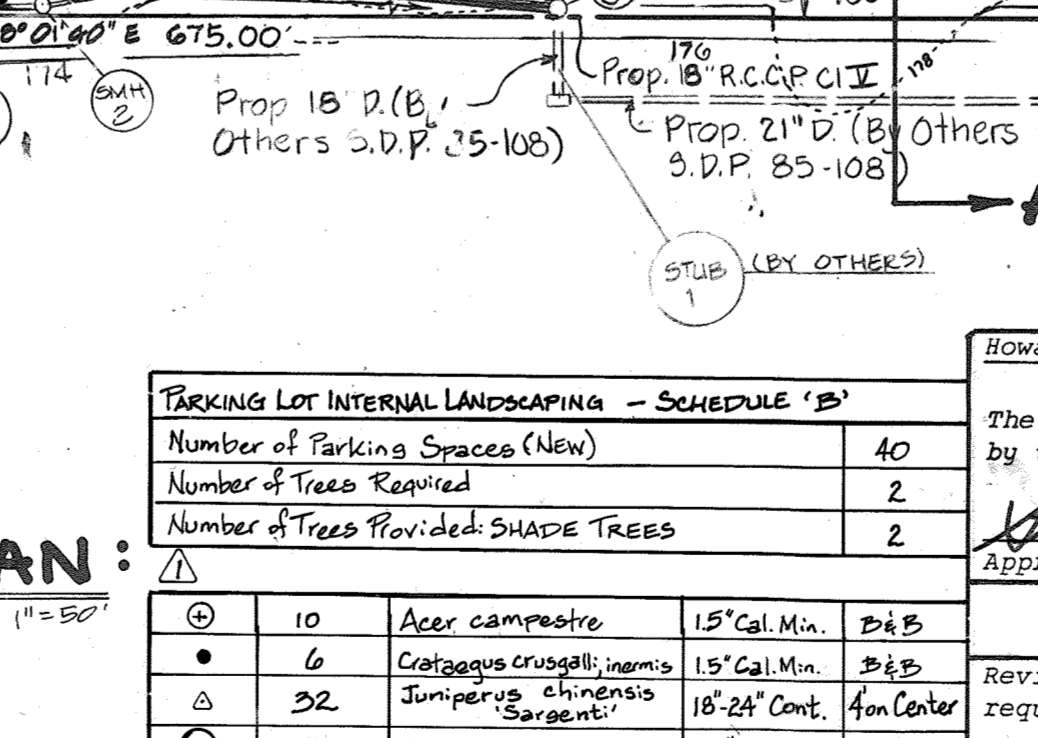 8°01'40" E 675.00'
174
SMH
2
Prop 18" D. (By
Others S.D.P. 85-108)
176
Prop. 18" R.C.C.P. Cl IV
178
Prop. 21" D. (By Others
S.D.P. 85-108)
STUB
1
(BY OTHERS)
PARKING LOT INTERNAL LANDSCAPING - SCHEDULE 'B'
Number of Parking Spaces (NEW) 40
Number of Trees Required 2
Number of Trees Provided: SHADE TREES 2
1
AN:
1"=50'
10 Acer campestre 1.5" Cal. Min. B&B
6 Crataegus crusgalli; inermis 1.5" Cal. Min. B&B
32 Juniperus chinensis 'Sargenti' 18"-24" Cont. 4' on Center
Howa
The
by
App
Revi
requ